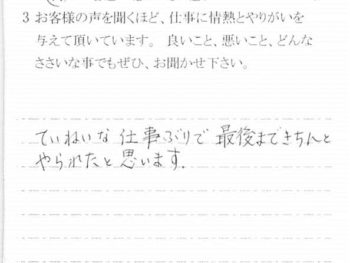 3 お客様の声を聞くほど、仕事に情熱とやりがいを
与えて頂いています。 良いこと、悪いこと、どんな
ささいな事でもぜひ、お聞かせ下さい。
ていねいな 仕事ぶりで 最後まできちんと
やられたと思います.